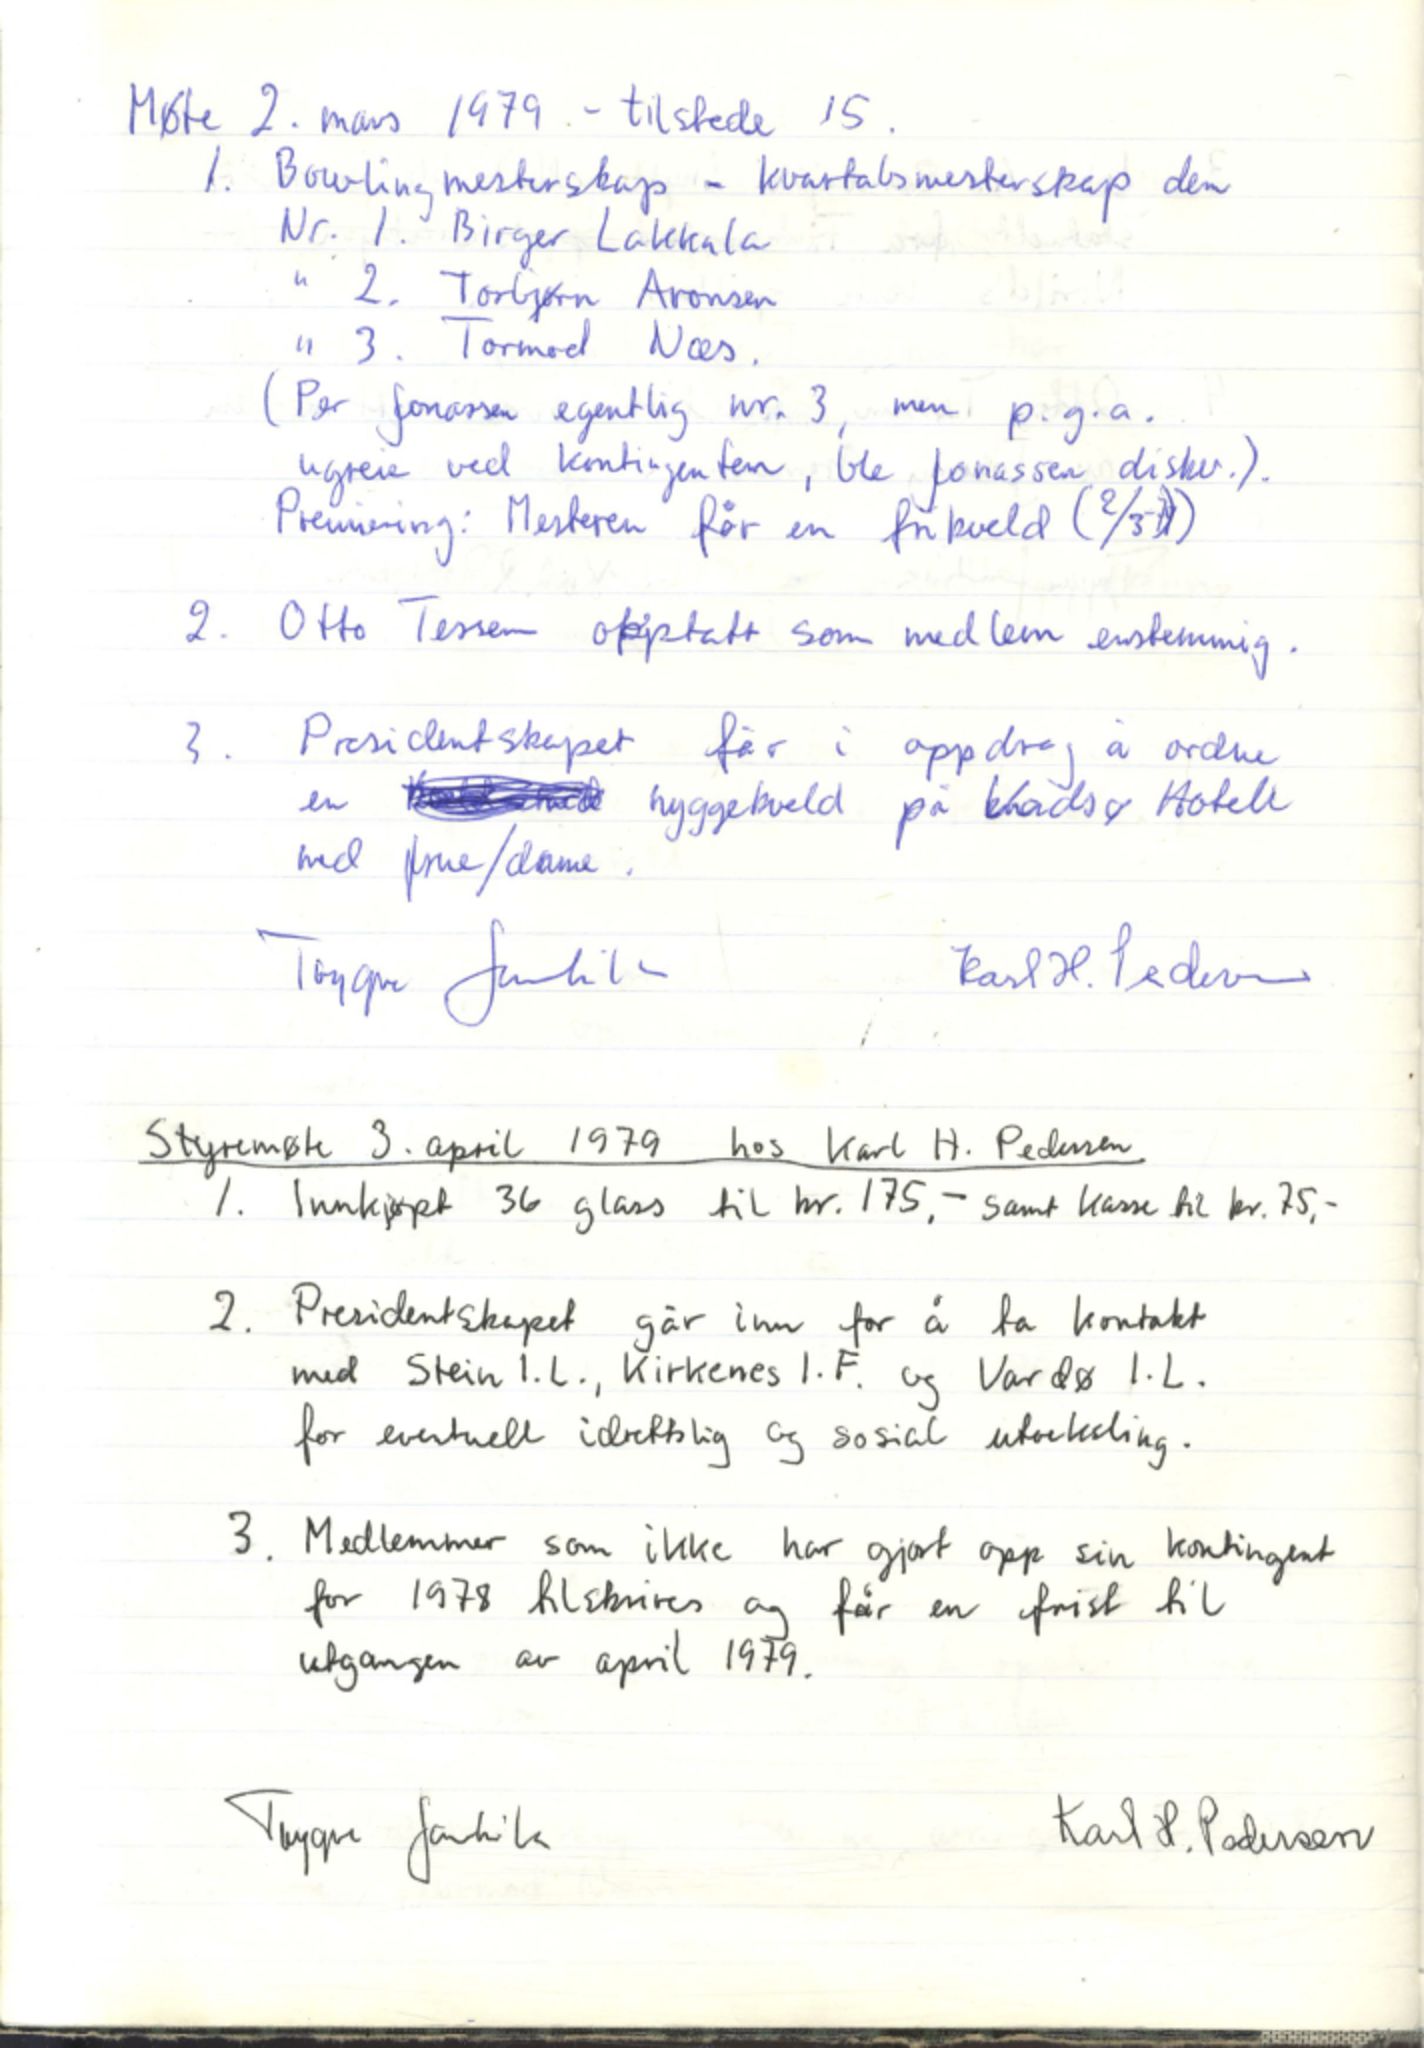 Møte 2. mars 1979 - tilstede 15.
1. Bowlingmesterskap - kvartalsmesterskap den
Nr. 1. Birger Lakkala
" 2. Torbjørn Aronsen
" 3. Tormod Næs.
(Per Jonassen egentlig nr. 3, men p.g.a.
ugreie ved kontingenten, ble Jonassen diskv.).
Premiering: Mesteren får en frikveld (2/3-
2. Otto Tessem opptatt som medlem enstemmig.
3. Presidentskapet får i oppdrag å ordne
en hyggekveld på Vadsø Hotell
med frue/dame.
Trygve Karl H. Pedersen
Styremøte 3. april 1979 hos Karl H. Pedersen
1. Innkjøpt 36 glass til kr. 175,- samt kasse til kr. 75,-
2. Presidentskapet går inn for å ta kontakt
med Stein I.L., Kirkenes I.F. og Vardø I.L.
for eventuell idrettslig og sosial utveksling.
3. Medlemmer som ikke har gjort opp sin kontingent
for 1978 tilskrives og får en frist til
utgangen av april 1979.
Trygve Karl H. Pedersen